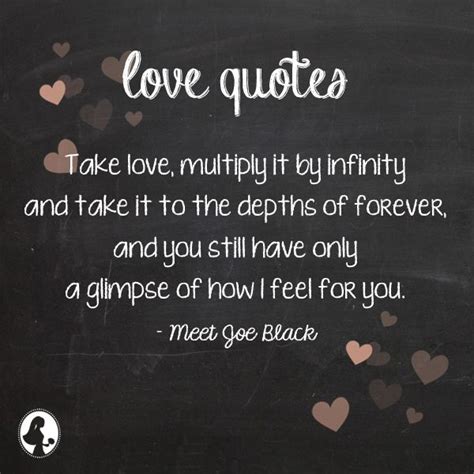 love quotes
Take love, multiply it by infinity
and take it to the depths of forever,
and you still have only
a glimpse of how I feel for you.
- Meet Joe Black